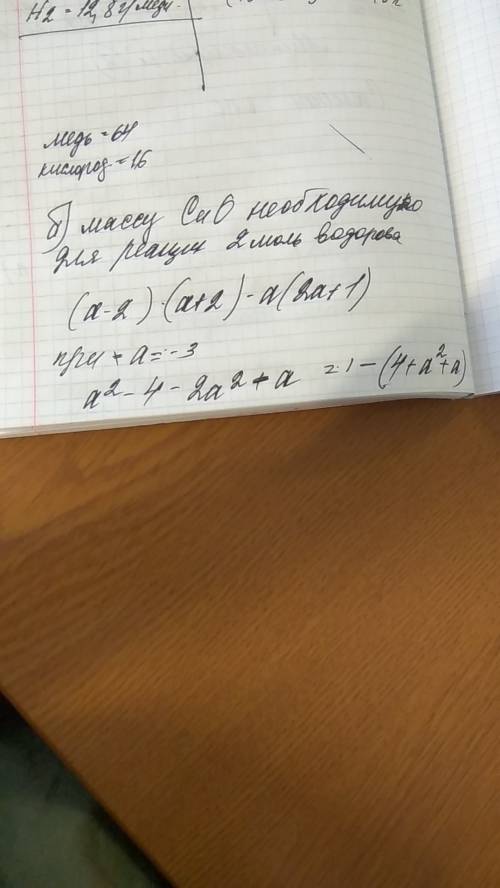 H2 = 12,8 г меди.
медь = 64
кислород = 16
б) массу CuO необходимую
для реакции 2 моль водорова
(a-2)·(a+2) - a(2a+1)
при - a = -3
a² - 4 - 2a² - a = - (4+a²+a)